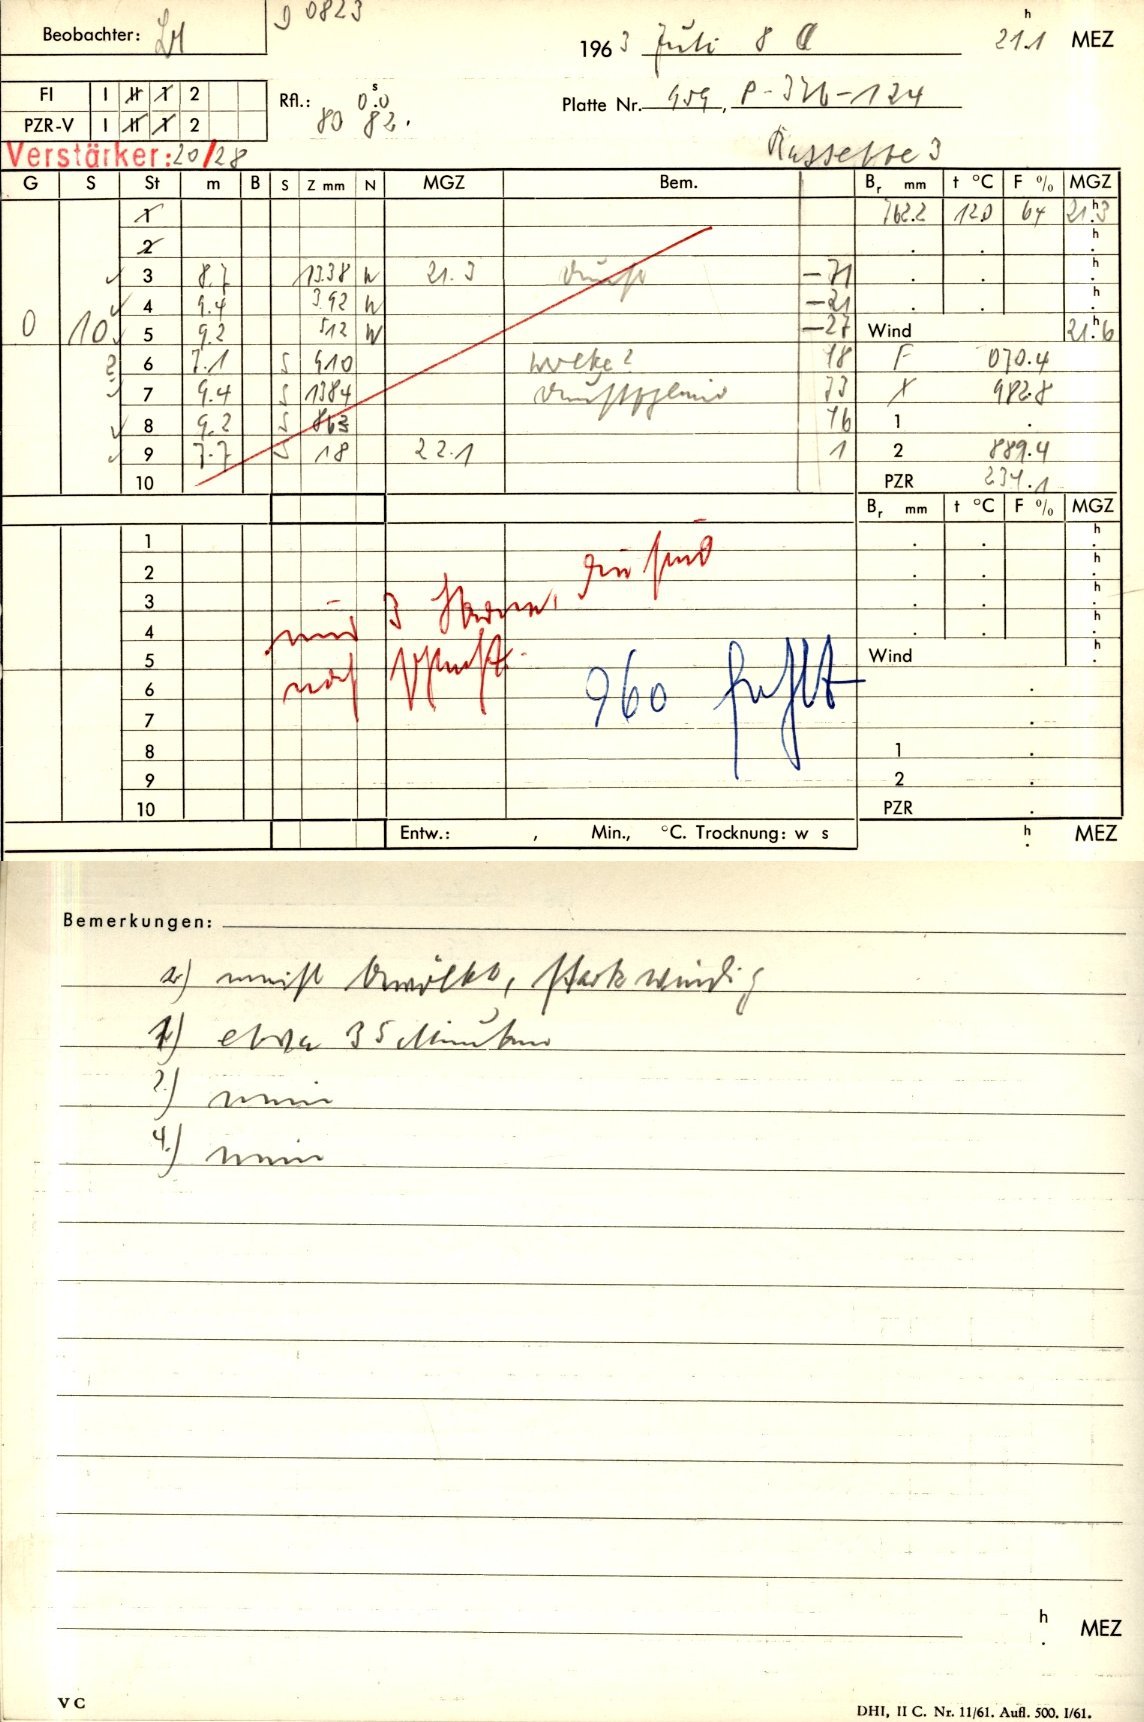 Beobachter:
D 0823
1963 Juli 8
21.1 h MEZ
FI I II 1 2
PZR-V I II 1 2
Rfl.: 0.0 s
80 82.
Platte Nr. 959, P-326-124
Verstärker: 20/28
Kassette 3
G S St m B S Z mm N MGZ Bem. Br mm t °C F % MGZ
1 762.2 12.0 64 21.3 h
2 . . h .
3 8.7 1338 W 21.3 Dunst -71 . . h .
4 9.4 392 W -21 . . h .
0 10 5 9.2 512 W -27 Wind 21.6 h
6 7.1 S 910 Wolke? 18 F 070.4
7 9.4 S 1384 73 X 982.8
8 9.2 S 863 76 1 .
9 7.7 S 18 22.1 1 2 889.4
10 PZR 234.1
Br mm t °C F % MGZ
1 . . h .
2 . . h .
3 . . h .
4 . . h .
5 Wind h .
6 .
7 .
8 1 .
9 2 .
10 PZR .
nur 3 Sterne, die sind
noch
960 fehlt
Entw.: , Min., °C. Trocknung: w s h . MEZ
Bemerkungen:
a) meist bewölkt, stark windig
1) etwa 35 Minuten
2.) nein
4.) nein
h . MEZ
V C
DHI, II C. Nr. 11/61. Aufl. 500. I/61.